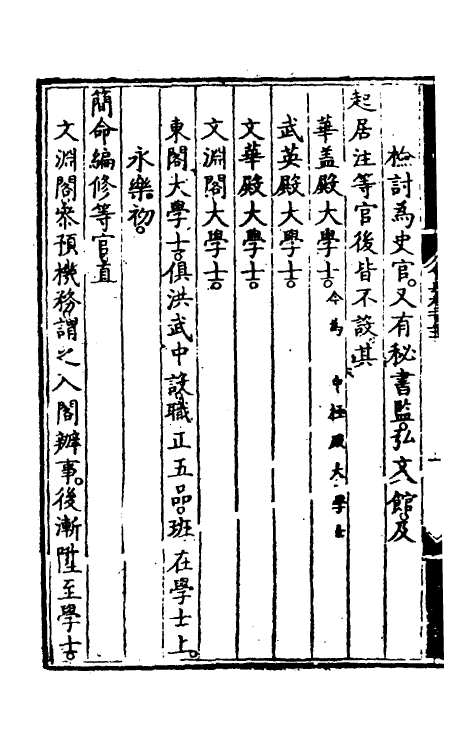 檢討為史官。又有秘書監。弘文館。及
起居注等官後皆不設其
華盖殿大學士。今為中極殿大學士
武英殿大學士。
文華殿大學士。
文淵閣大學士。
東閣大學士。俱洪武中設。職正五品。班在學士上。
永樂初。
簡命編修等官直
文淵閣。叅預機務。謂之入閣辦事。後漸陞至學士。